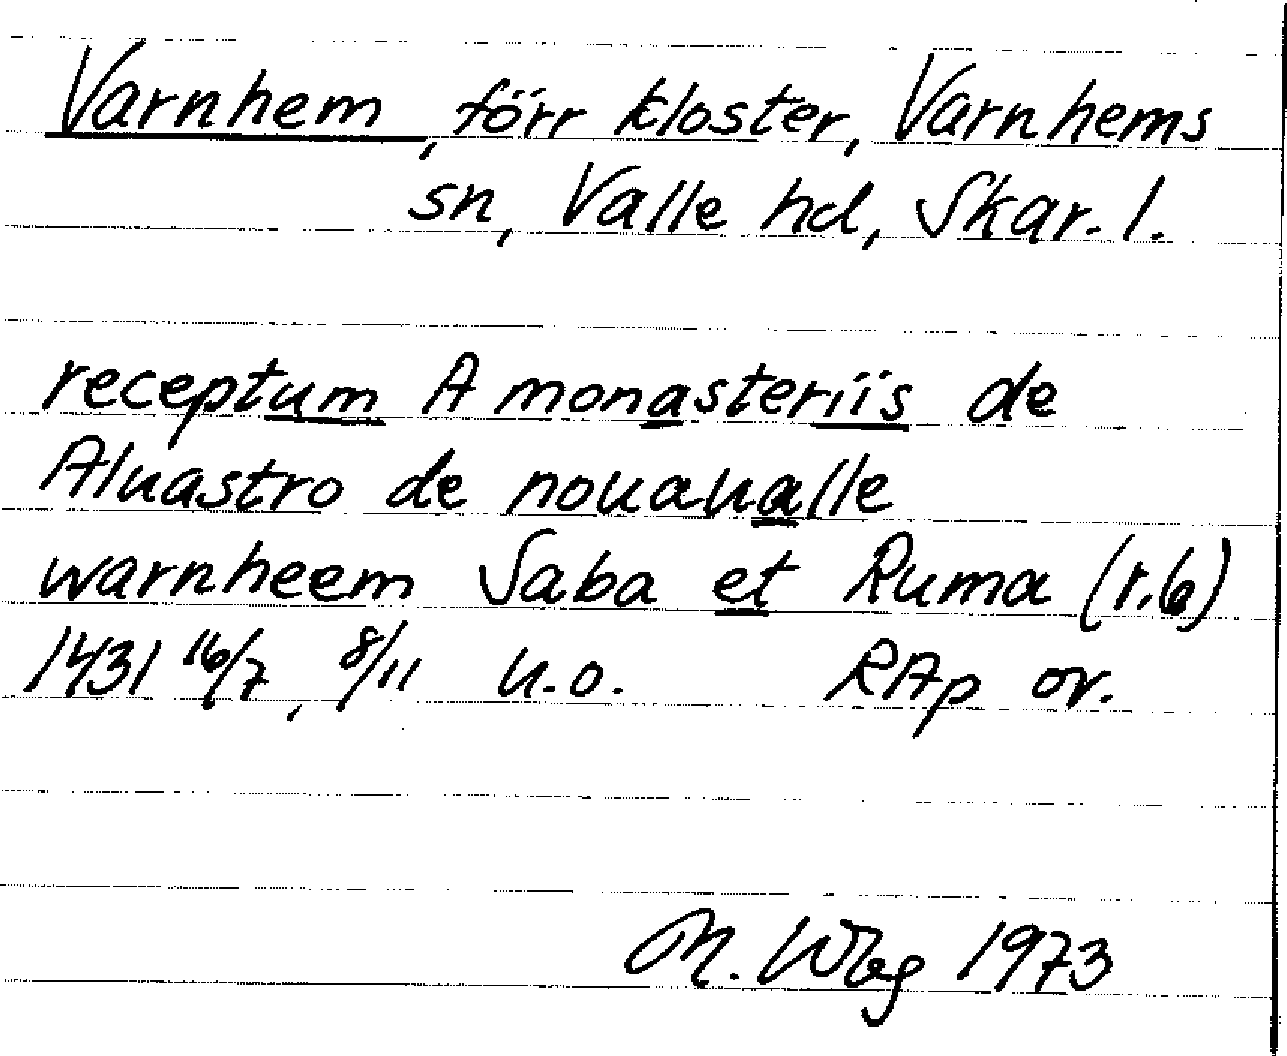 Varnhem, förr kloster, Varnhems
sn, Valle hd, Skar. l.
receptum A monasteriis de
Aluastro de nouaualle
warnheem Saba et Ruma (r.6)
1431 16/7, 8/11 u.o. RAp or.
M. Wbg 1973